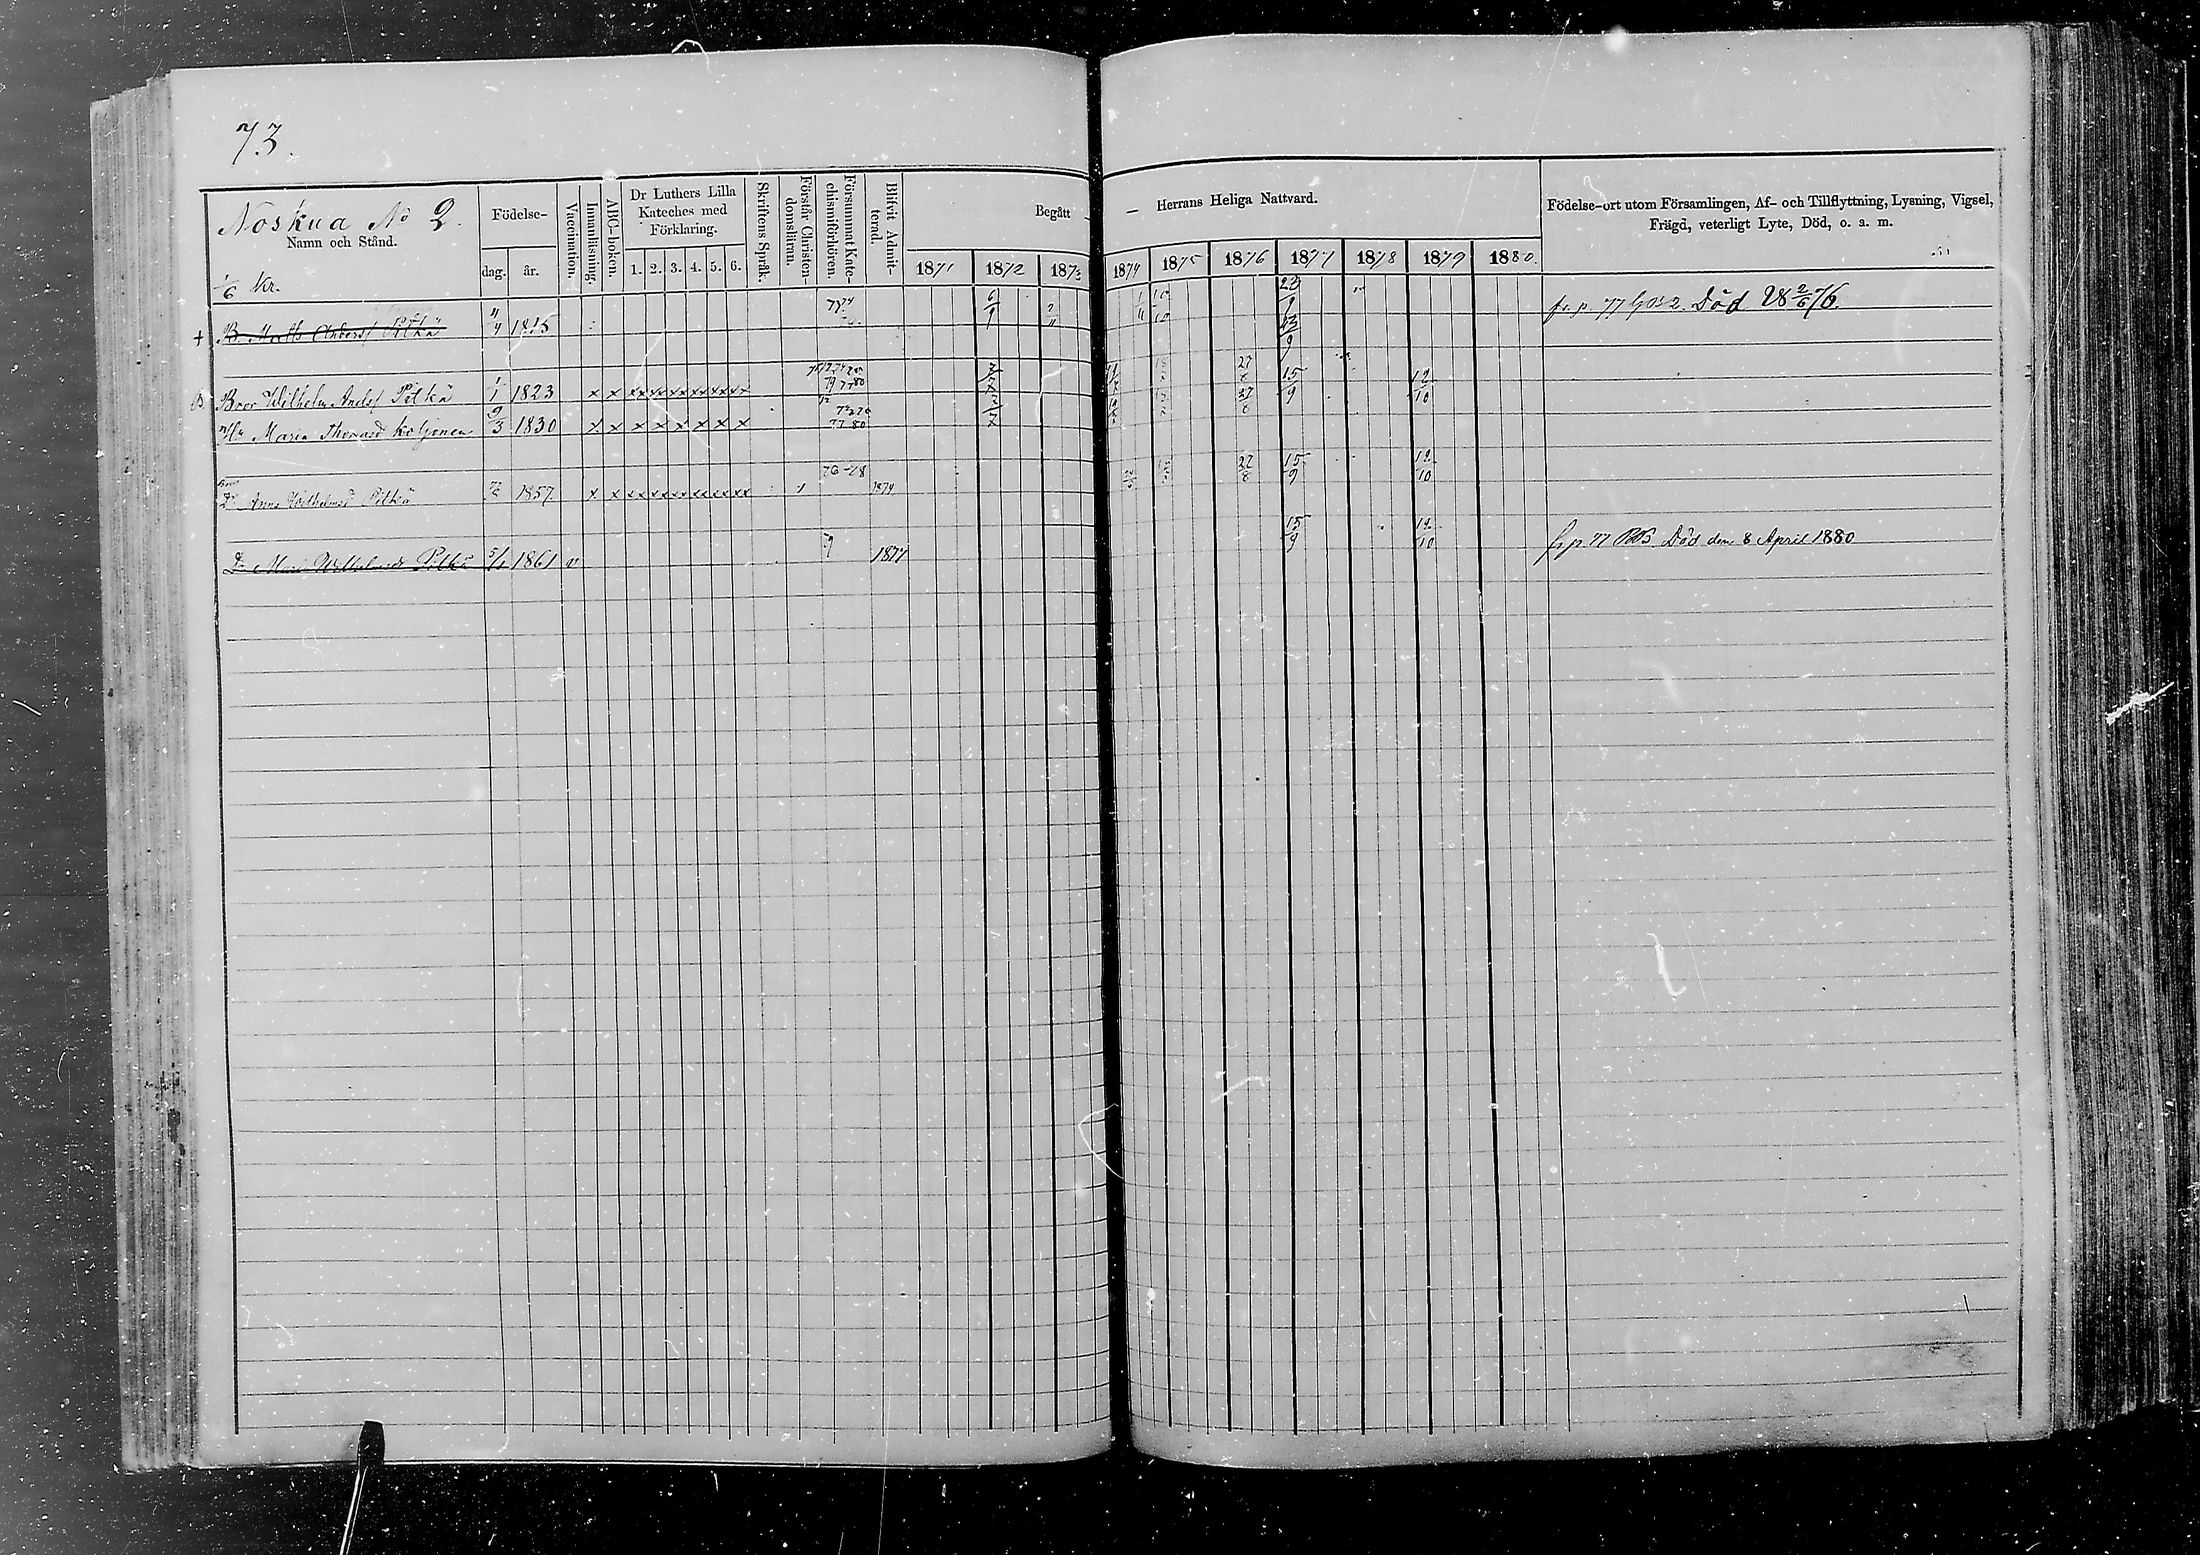 73.
Noskua No 2.
Namn och Stånd.
Födelse-
dag. år.
Vaccination.
Innanläsning.
ABC-boken.
Dr Luthers Lilla Kateches med Förklaring.
1. 2. 3. 4. 5. 6.
Skriftens Språk.
Förstår Christendomslärnn.
Försummat Katechismiförhören.
Blifvit Admitterad.
Begått — Herrans Heliga Nattvard.
1871 1872 1873 1874 1875 1876 1877 1878 1879 1880.
Födelse-ort utom Församlingen, Af- och Tillflyttning, Lysning, Vigsel,
Frägd, veterligt Lyte, Död, o. a. m.
1/6 Kr.
+ B. Matts Anderss Pitkä 11/4 fr. p. 77 Död 2/6 76.
B. Bror Wilhelm Ands Pitkä 1/1 1823 x x x x x x x x 15/9 12/10
Maria Thomasd Koljonen 9/3 1830 x x x x x x x x 77 80 27/8
Dr Anna Wilhelmsd Pitkä 1857 x x x x x x x x 76-78 1874 27/8 15/9 12/10
Dr Maria Wilhelmsd Pitkä 5/1 1861 v 79 1877 15/9 12/10 fr p. 77 Död den 8 April 1880